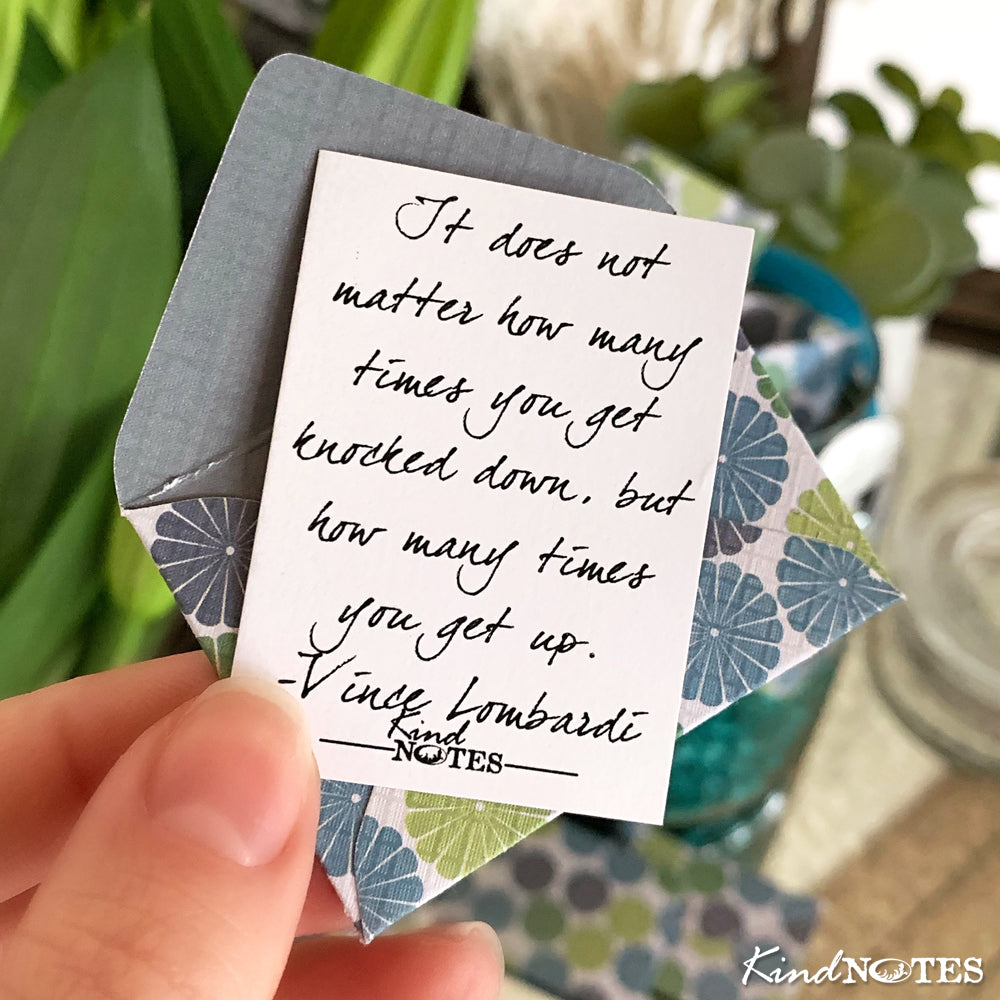 It does not
matter how many
times you get
knocked down, but
how many times
you get up.
-Vince Lombardi
Kind
NOTES
KindNOTES